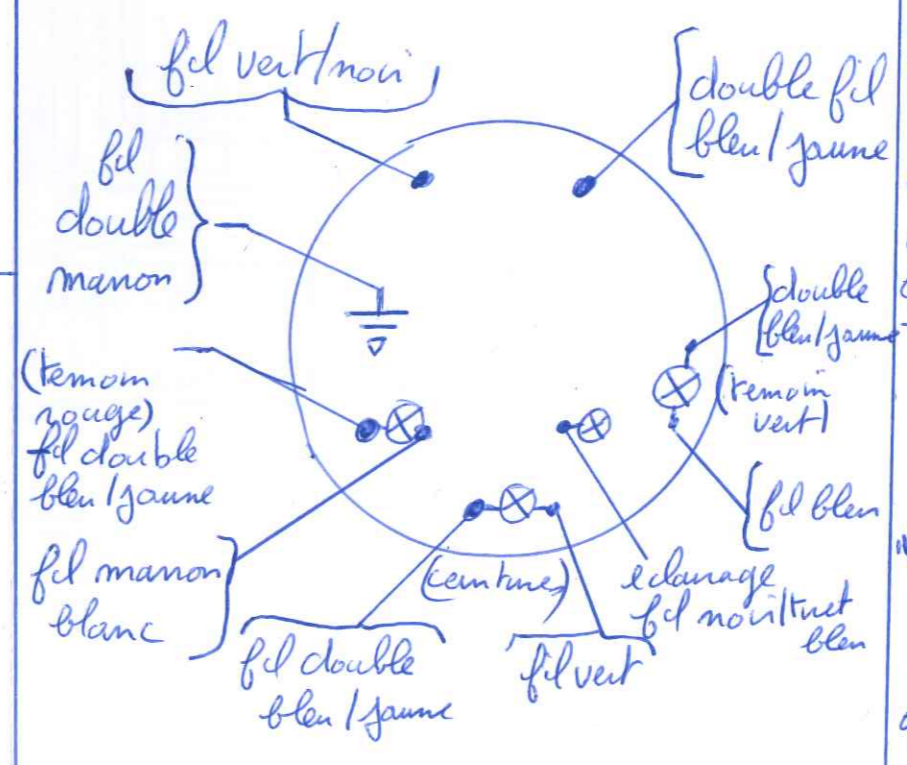 fil vert/noir
double fil
bleu/jaune
fil
double
marron
double
bleu/jaune
(temoin
vert)
(temoin
rouge)
fil double
bleu/jaune
fil bleu
fil marron
blanc
(ceinture)
eclairage
fil noir/
bleu
fil double
bleu/jaune
fil vert